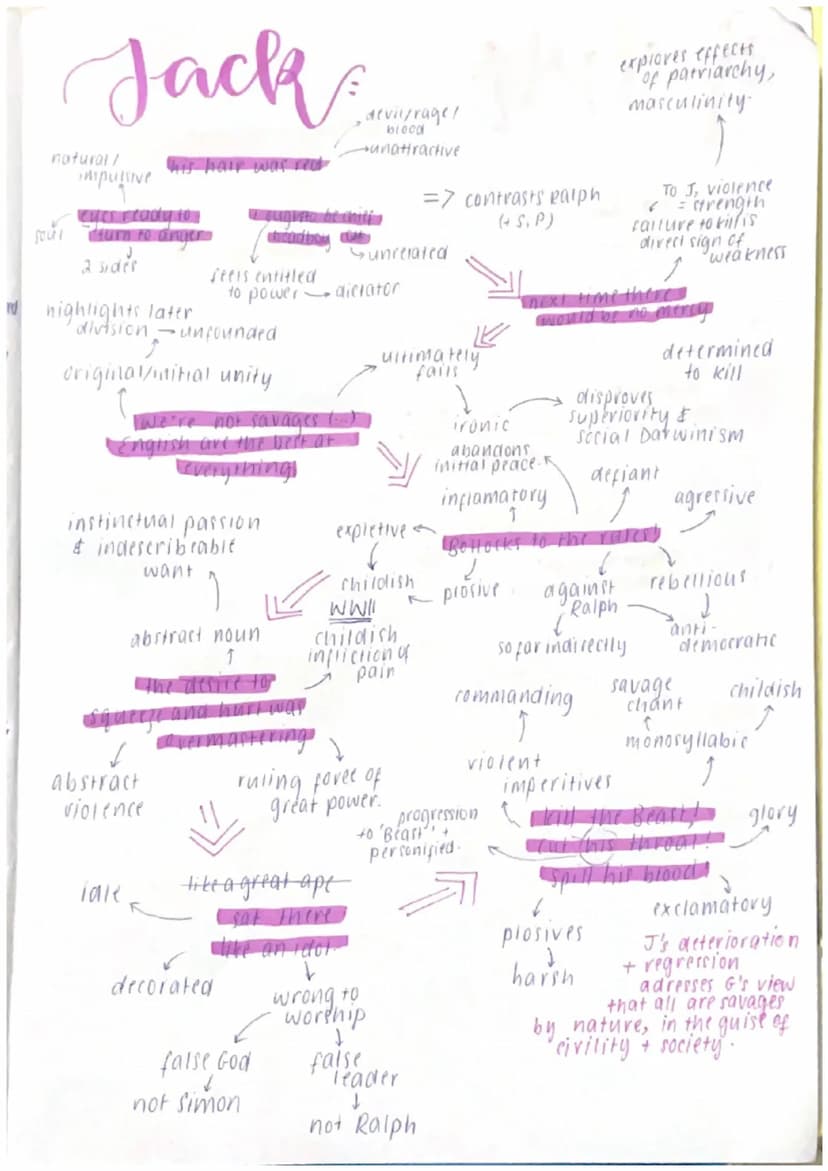 Jack:
explores effects
of patriarchy,
masculinity.
devil/rage/
blood
unattractive
his hair was red
natural/
impulsive
=> contrasts Ralph
(+ S, P)
To J, violence
= strength
failure to kill is
direct sign of
weakness
eyes ready to
turn to anger
soul
2 sides
I ought to be chief
headboy
unrelated
feels entitled
to power → dictator
next time there
would be no mercy
determined
to kill
highlights later
division → unfounded
original/initial unity
ultimately
fails
ironic
disproves
superiority &
social Darwinism
We're not savages (...)
English are the best at
everything
abandons
initial peace.
inflamatory
defiant
agressive
instinctual passion
& indescribeable
want
expletive
Bollocks to the rules!
childish
plosive
against
Ralph
rebellious
so far indirectly
anti-
democratic
WWII
childish
infliction of
pain
abstract noun
the desire to
squeeze and hurt was
overmastering
abstract
violence
ruling force of
great power.
commanding
savage
chant
childish
monosyllabic
violent
imperitives
progression
to 'Beast' +
personified.
kill the Beast!
cut his throat!
spill his blood!
glory
exclamatory
plosives
harsh
idle
like a great ape
sat there
like an idol.
decorated
wrong to
worship
false God
not Simon
false
leader
not Ralph
J's deterioration
+ regression
adresses G's view
that all are savages
by nature, in the guise of
civility + society.